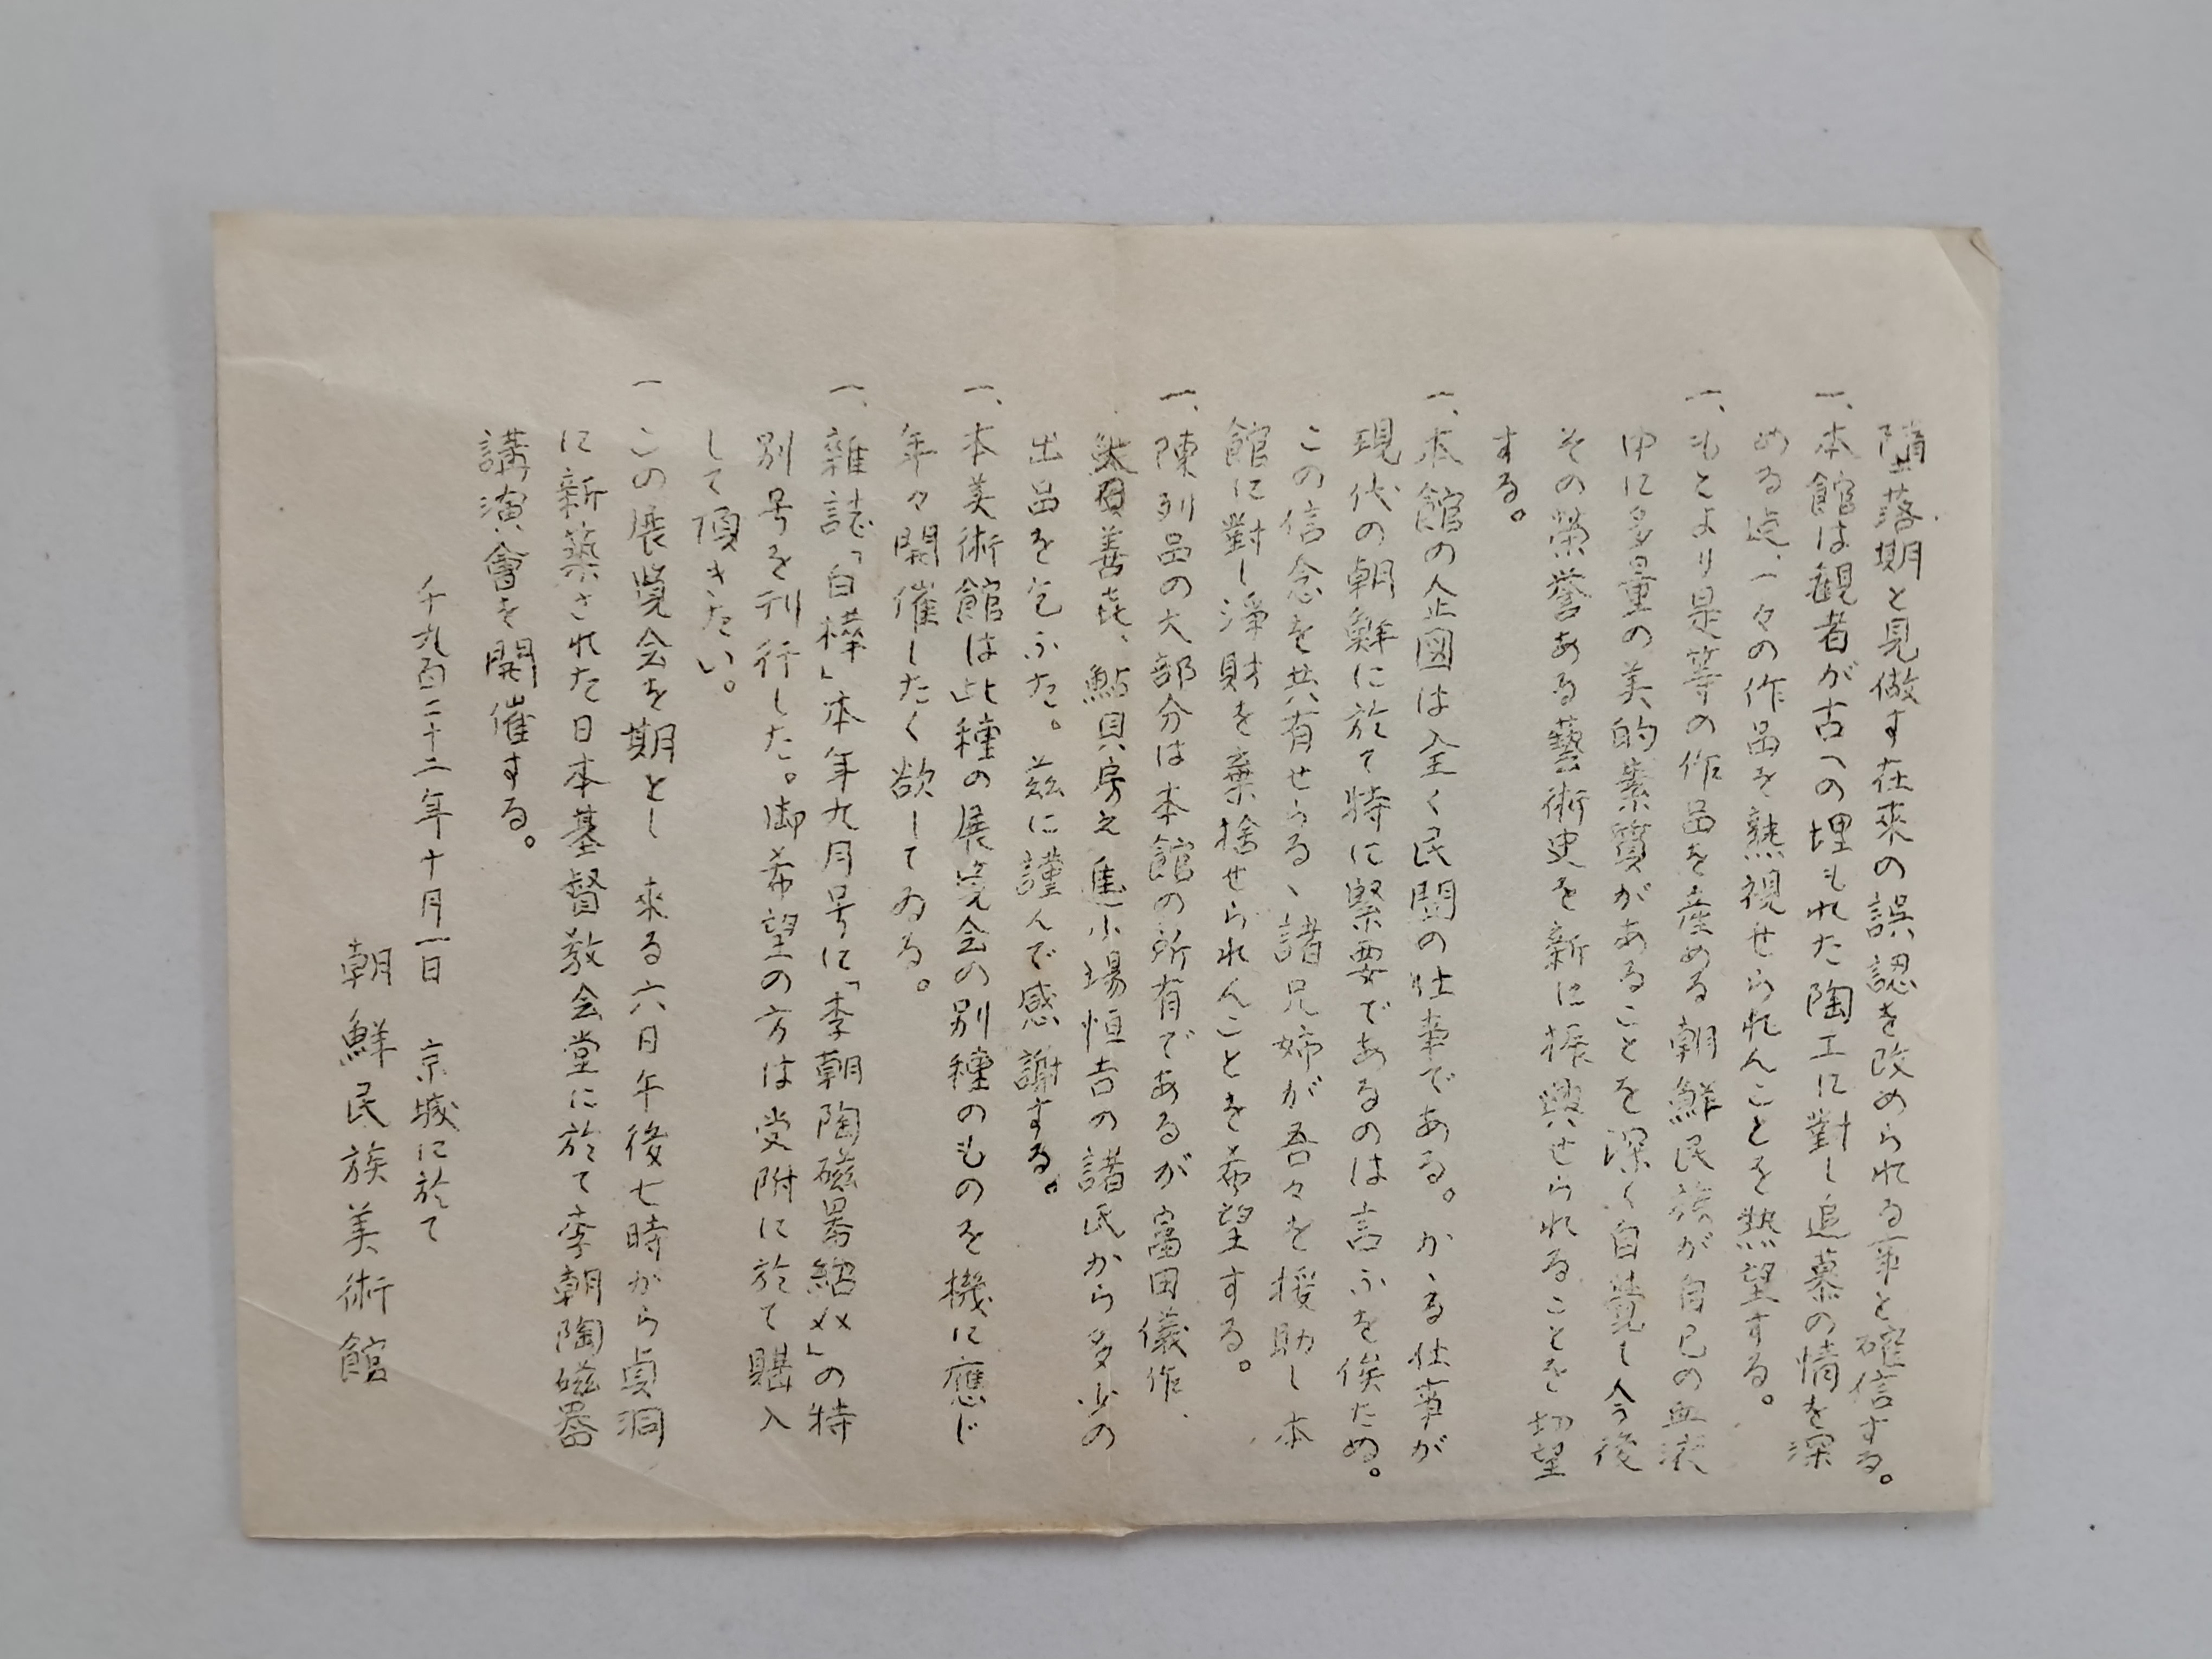 墮落期と見做す在來の誤認を改められる事と確信する。
一、本館は観者が古への埋もれた陶工に對し追慕の情を深
める迄、一々の作品を熟視せられんことを熱望する。
一、もとより是等の作品を産める朝鮮民族が自己の血液
中に多量の美的素質があることを深く自覚し今後
その榮誉ある藝術史を新に振興せられることを切望
する。
一、本館の企図は全く民間の仕事である。かゝる仕事が
現代の朝鮮に於て特に緊要であるのは言ふを俟たぬ。
この信念を共有せらるゝ諸兄姉が吾々を援助し本
館に對し淨財を棄捨せられんことを希望する。
一、陳列品の大部分は本館の所有であるが富田儀作、
善㐂、鮎貝房之進小場恒吉の諸氏から多少の
出品を乞ふた。茲に謹んで感謝する。
一、本美術館は此種の展覧会の別種のものを機に應じ
年々開催したく欲してゐる。
一、雜誌「白樺」本年九月号に「李朝陶磁器紹介」の特
別号を刊行した。御希望の方は受附に於て購入
して頂きたい。
一 この展覧会を期とし 来る六日午後七時がら貞洞
に新築された日本基督教会堂に於て李朝陶磁器
講演會を開催する。
千九百二十二年十月一日 京城に於て
朝鮮民族美術館